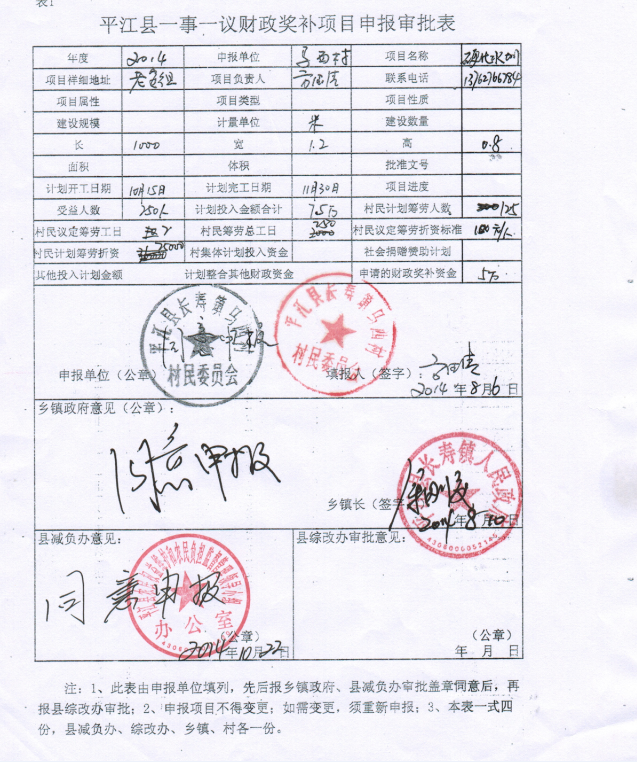 表1
平江县一事一议财政奖补项目申报审批表
年度 2014 申报单位 马西村 项目名称
项目祥细地址 项目负责人 联系电话 13762766784
项目属性 项目类型 项目性质
建设规模 计量单位 米 建设数量
长 1000 宽 1.2 高 0.8
面积 体积 批准文号
计划开工日期 10月15日 计划完工日期 11月30日 项目进度
受益人数 250人 计划投入金额合计 7.5万 村民计划筹劳人数 125
村民议定筹劳工日 2 村民筹劳总工日 250 村民议定筹劳折资标准 100元/人
村民计划筹劳折资 25000 村集体计划投入资金 社会捐赠赞助计划
其他投入计划金额 计划整合其他财政资金 申请的财政奖补资金 5万
平江县长寿镇马西村
村民委员会
平江县长寿镇马西村
村民委员会
同意申报
申报单位（公章） 填报人（签字）：
2014年8月6日
乡镇政府意见（公章）：
同意申报
县长寿镇人民政府
乡镇长（签字
2014年8月10日
县减负办意见： 县综改办审批意见：
同意申报
办公室
（公章） （公章）
2014年10月22日 年 月 日
注：1、此表由申报单位填列，先后报乡镇政府、县减负办审批盖章同意后，再
报县综改办审批；2、申报项目不得变更；如需变更，须重新申报；3、本表一式四
份，县减负办、综改办、乡镇、村各一份。